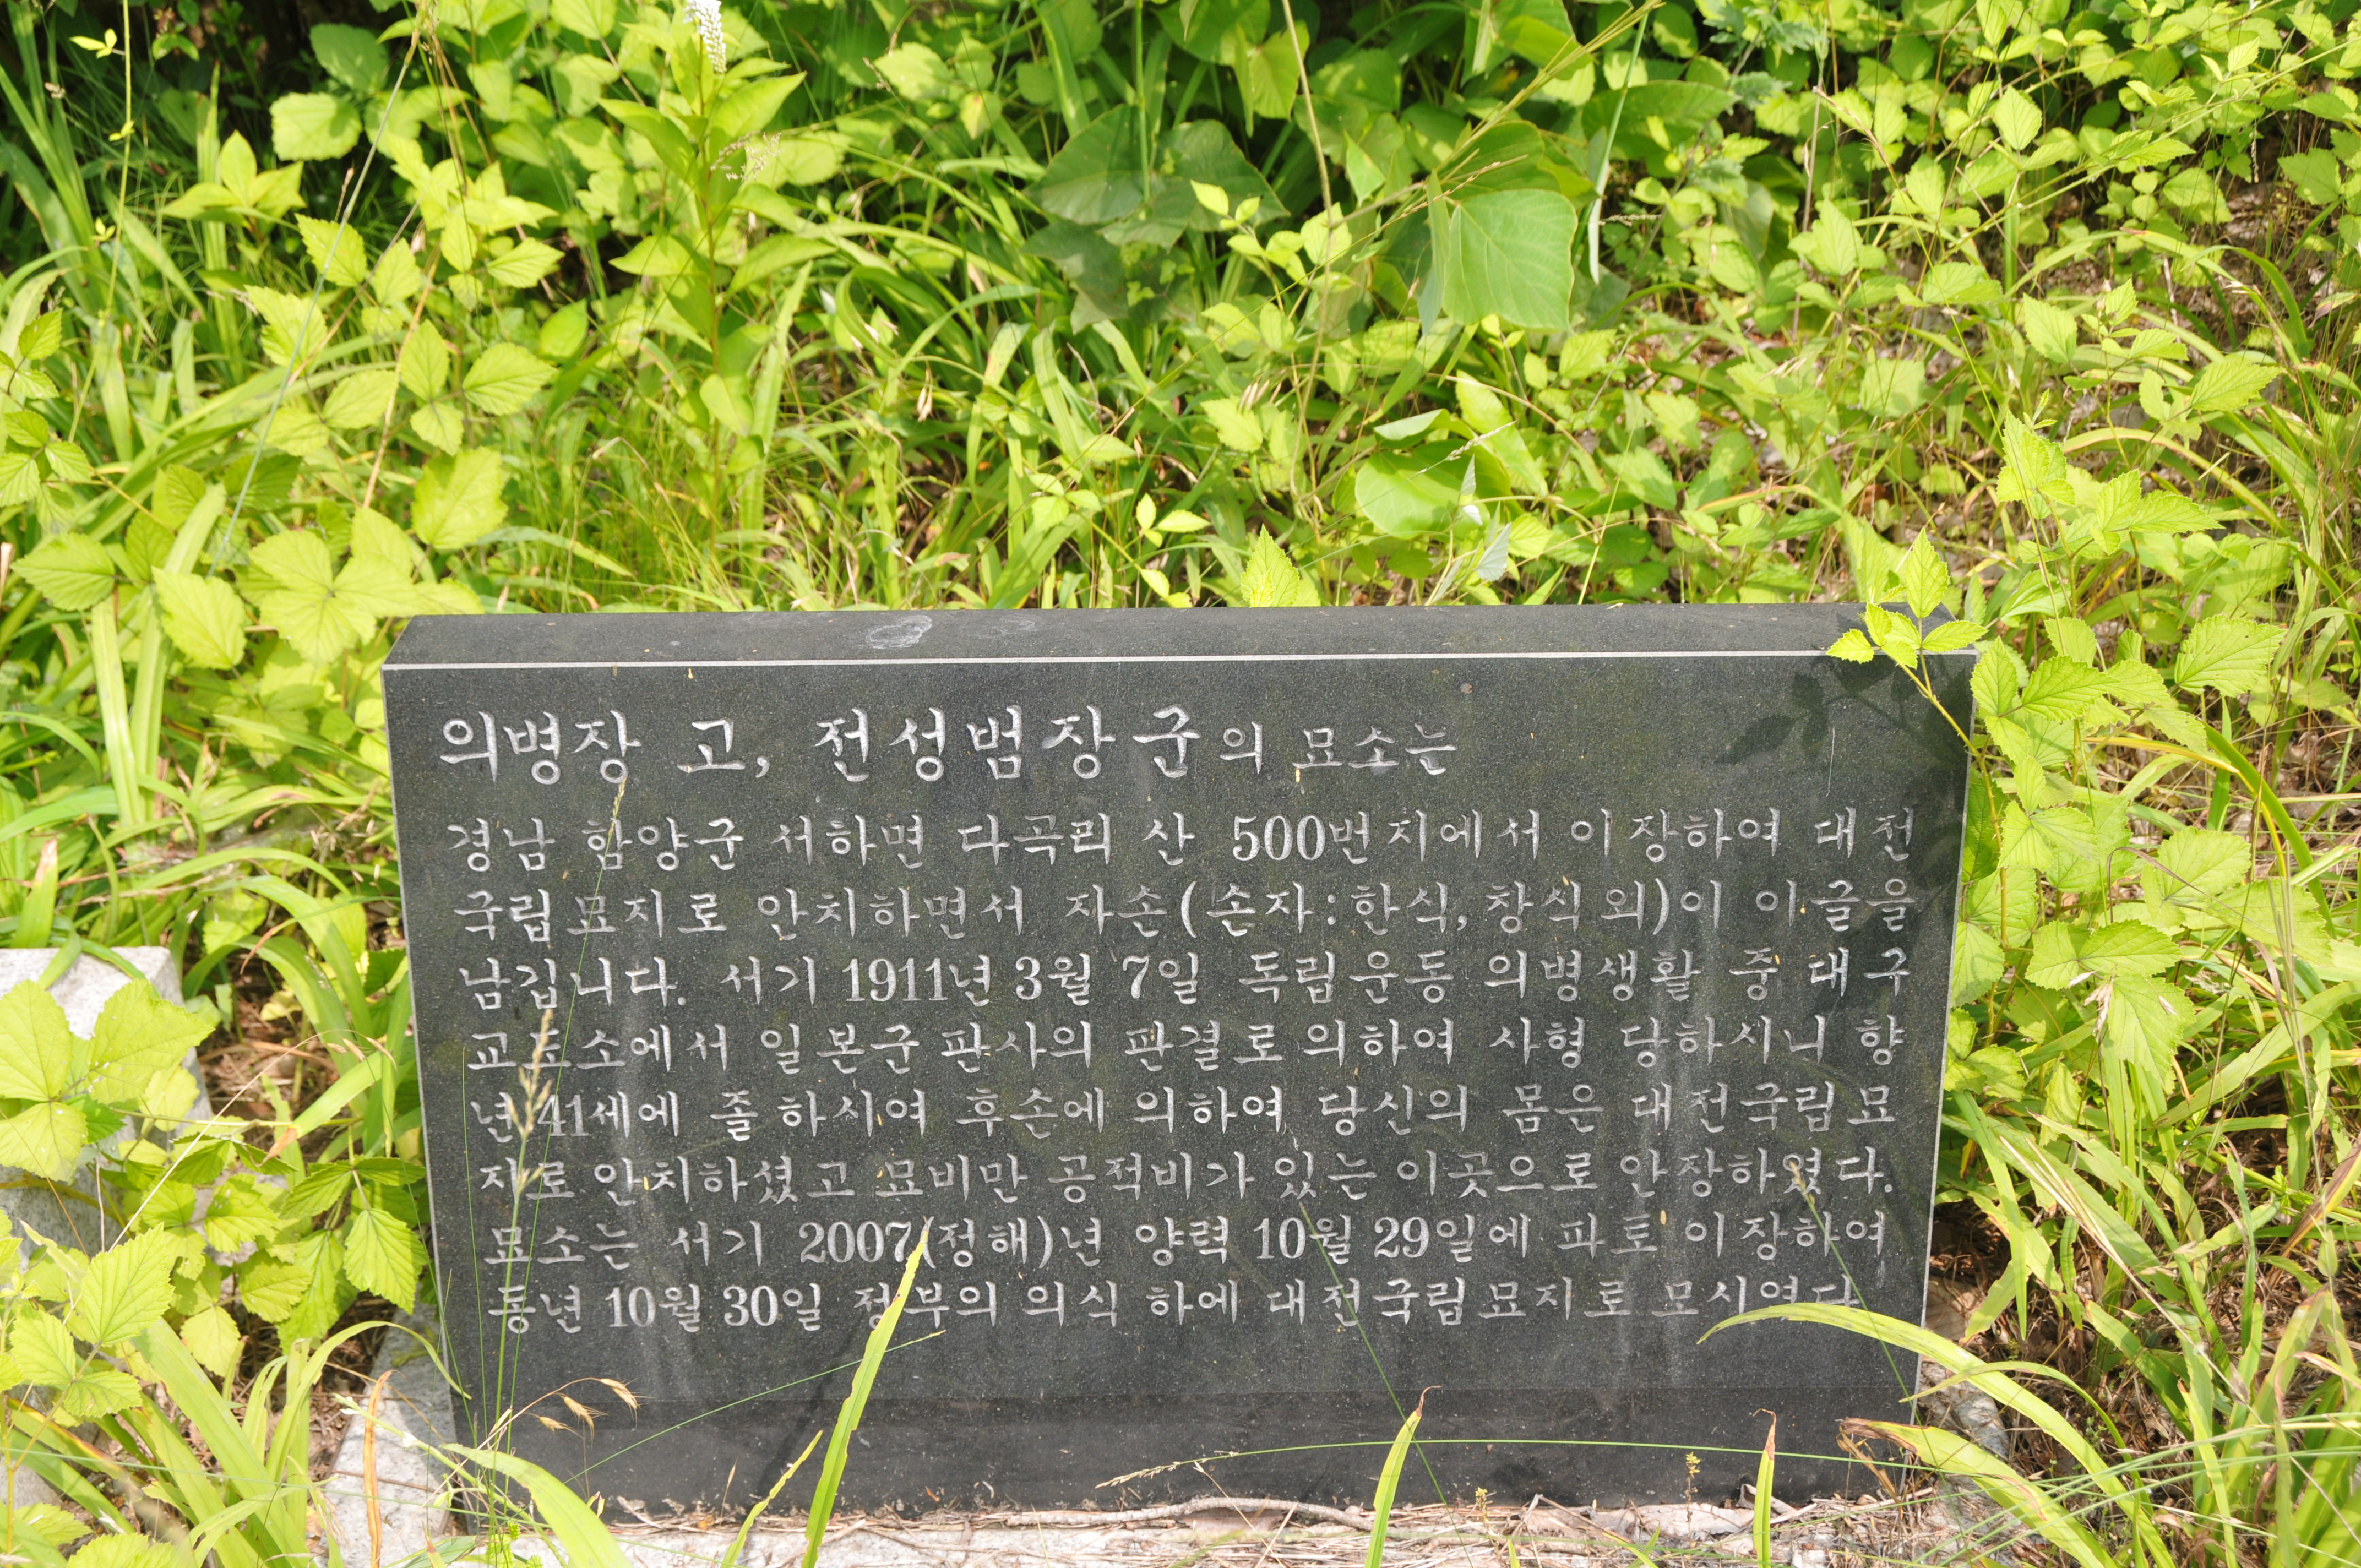 의병장 고, 전성범장군의 묘소는
경남 함양군 서하면 다곡리 산 500번지에서 이장하여 대전
국립묘지로 안치하면서 자손(손자:한식, 창식 외)이 이글을
남깁니다. 서기 1911년 3월 7일 독립운동 의병생활 중 대구
교도소에서 일본군 판사의 판결로 의하여 사형 당하시니 향
년 41세에 졸하시여 후손에 의하여 당신의 몸은 대전국립묘
지로 안치하셨고 묘비만 공적비가 있는 이곳으로 안장하였다.
묘소는 서기 2007(정해)년 양력 10월 29일에 파토 이장하여,
동년 10월 30일 정부의 의식 하에 대전국립묘지로 모시였다